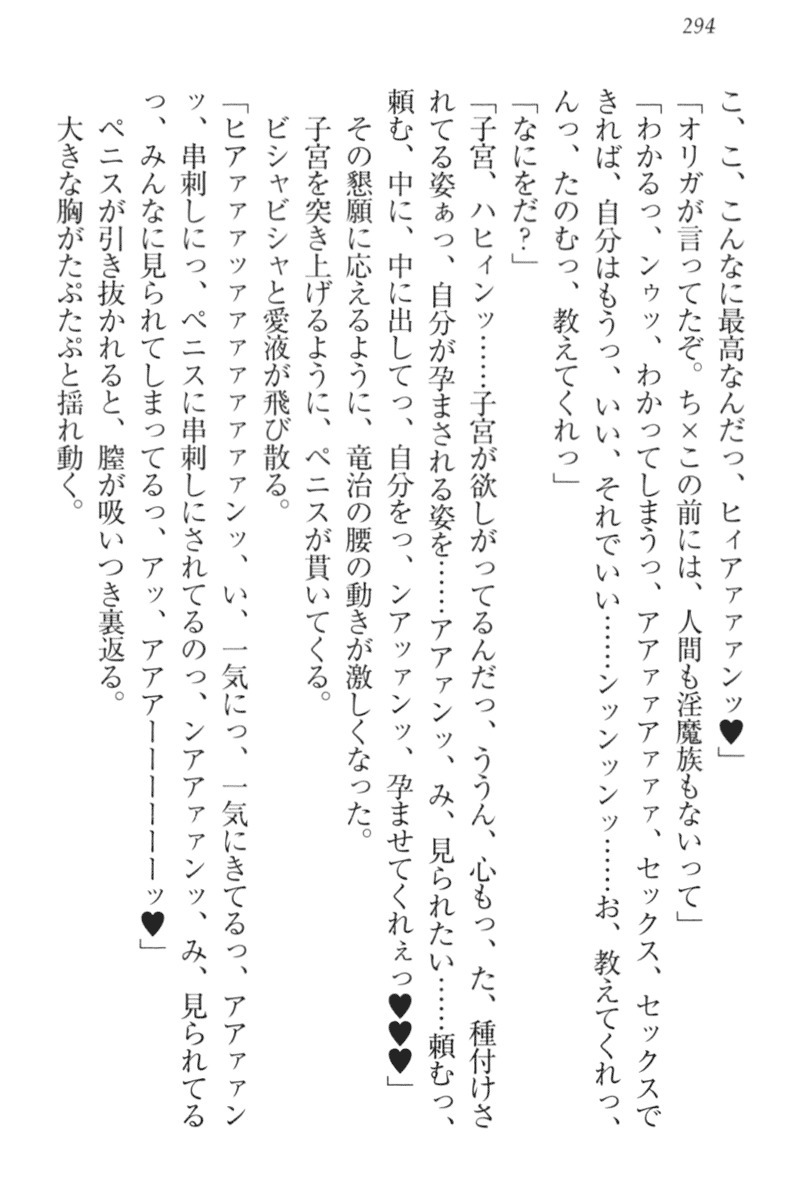 294
こ、こ、こんなに最高なんだっ、ヒィアァァァンッ♥」
「オリガが言ってたぞ。ち×この前には、人間も淫魔族もないって」
「わかるっ、ンゥッ、わかってしまうっ、アアァァアァァァ、セックス、セックスで
きれば、自分はもうっ、いい、それでいい……ンッンッンッ……お、教えてくれっ、
んっ、たのむっ、教えてくれっ」
「なにをだ？」
「子宮、ハヒィンッ……子宮が欲しがってるんだっ、ううん、心もっ、た、種付けさ
れてる姿ぁっ、自分が孕まされる姿を……アアァンッ、み、見られたい……頼むっ、
頼む、中に、中に出してっ、自分をっ、ンアッァンッ、孕ませてくれぇっ♥♥♥」
その懇願に応えるように、竜治の腰の動きが激しくなった。
子宮を突き上げるように、ペニスが貫いてくる。
ビシャビシャと愛液が飛び散る。
「ヒアァァァッァアァァァァァァンッ、い、一気にっ、一気にきてるっ、アアァァン
ッ、串刺しにっ、ペニスに串刺しにされてるのっ、ンアアァァンッ、み、見られてる
っ、みんなに見られてしまってるっ、アッ、アアアーーーーーーッ♥」
ペニスが引き抜かれると、膣が吸いつき裏返る。
大きな胸がたぷたぷと揺れ動く。